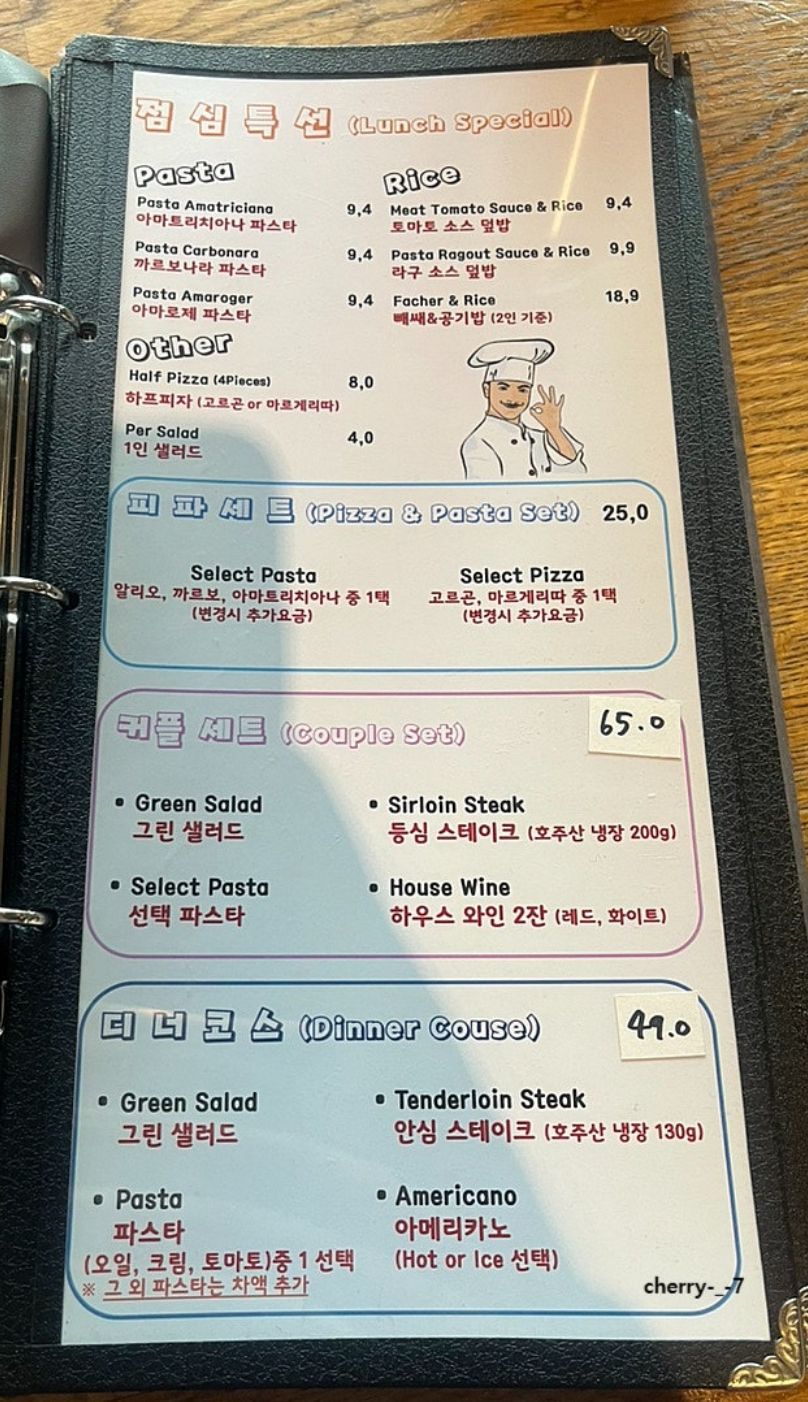 점심특선 (Lunch Special)
Pasta
Pasta Amatriciana 9,4
아마트리치아나 파스타
Pasta Carbonara 9,4
까르보나라 파스타
Pasta Amaroger 9,4
아마로제 파스타
Rice
Meat Tomato Sauce & Rice 9,4
토마토 소스 덮밥
Pasta Ragout Sauce & Rice 9,9
라구 소스 덮밥
Facher & Rice 18,9
빼쌔&공기밥 (2인 기준)
Other
Half Pizza (4Pieces) 8,0
하프피자 (고르곤 or 마르게리따)
Per Salad 4,0
1인 샐러드
피파세트 (Pizza & Pasta Set) 25,0
Select Pasta
알리오, 까르보, 아마트리치아나 중 1택
(변경시 추가요금)
Select Pizza
고르곤, 마르게리따 중 1택
(변경시 추가요금)
커플 세트 (Couple Set) 65.0
• Green Salad
그린 샐러드
• Sirloin Steak
등심 스테이크 (호주산 냉장 200g)
• Select Pasta
선택 파스타
• House Wine
하우스 와인 2잔 (레드, 화이트)
디너코스 (Dinner Couse) 49.0
• Green Salad
그린 샐러드
• Tenderloin Steak
안심 스테이크 (호주산 냉장 130g)
• Pasta
파스타
(오일, 크림, 토마토)중 1 선택
※ 그 외 파스타는 차액 추가
• Americano
아메리카노
(Hot or Ice 선택)
cherry-_-7